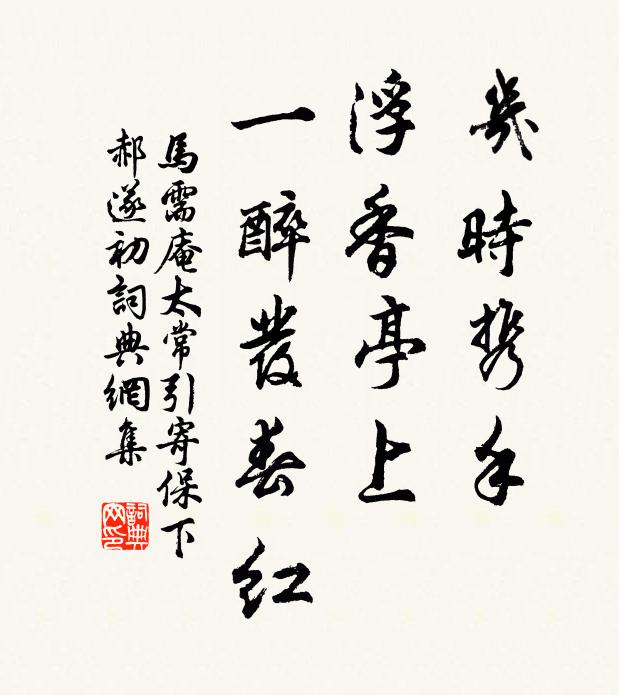 幾時携手
浮香亭上
一醉發春紅
馬需庵太常引寄保下
郝遂初詞典網集
詞典网印